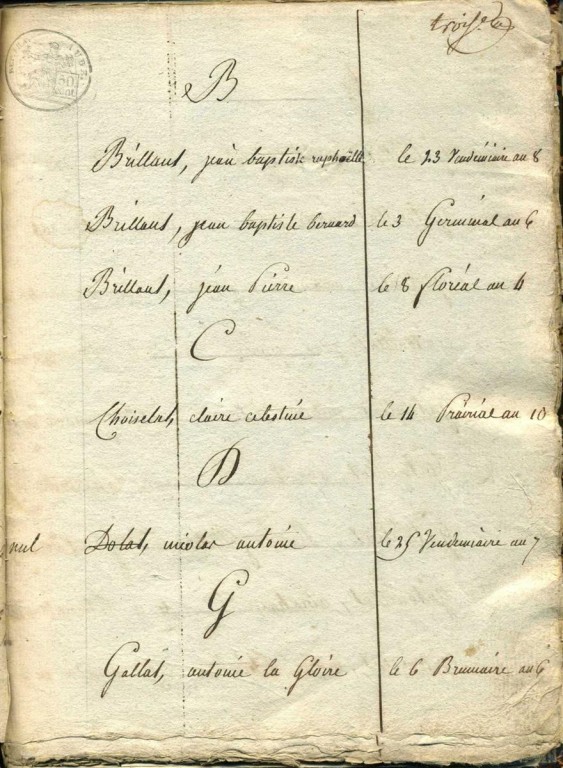 B
Brillant, jean baptiste raphaëlle le 23 Vendémiaire an 8
Brillant, jean baptiste bernard le 3 Germinal an 6
Brillant, jéan Piérre le 8 floréal an 4
C
Choiselat, claire celestine le 14 Prairial an 10
D
nul Dolat, nicolas antoine le 25 Vendemiaire an 7
G
Gallat, antoine la Gloire le 6 Brumaire an 6